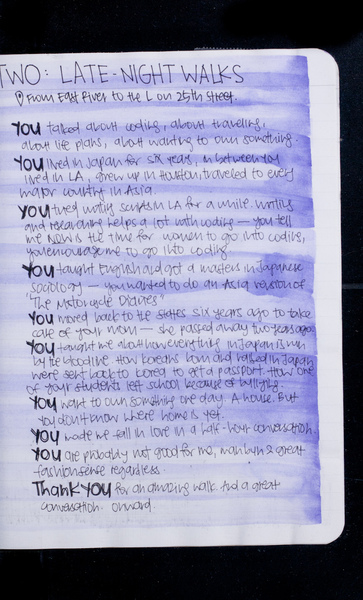 TWO: LATE-NIGHT WALKS
From East River to the L on 25th Street.
YOU talked about coding, about traveling,
about life plans, about wanting to own something.
YOU lived in Japan for six years, in between you
lived in LA, grew up in Houston, traveled to every
major country in Asia.
YOU tried writing scripts in LA for a while. Writing
and researching helps a lot with coding — you tell
me NOW is the time for women to go into coding,
you encourage me to go into coding.
YOU taught English and got a masters in Japanese
sociology — you wanted to do an Asia version of
"The Motorcycle Diaries"
YOU moved back to the states six years ago to take
care of your mom — she passed away two years ago.
YOU taught me about how everything in Japan is run
by the bloodline. How Koreans born and raised in Japan
were sent back to Korea to get a passport. How one
of your students left school because of bullying.
YOU want to own something one day. A house. But
you don't know where home is yet.
YOU made me fall in love in a half-hour conversation.
YOU are probably not good for me, man bun & great
fashion sense regardless.
Thank YOU for an amazing walk. And a great
conversation. Onward.